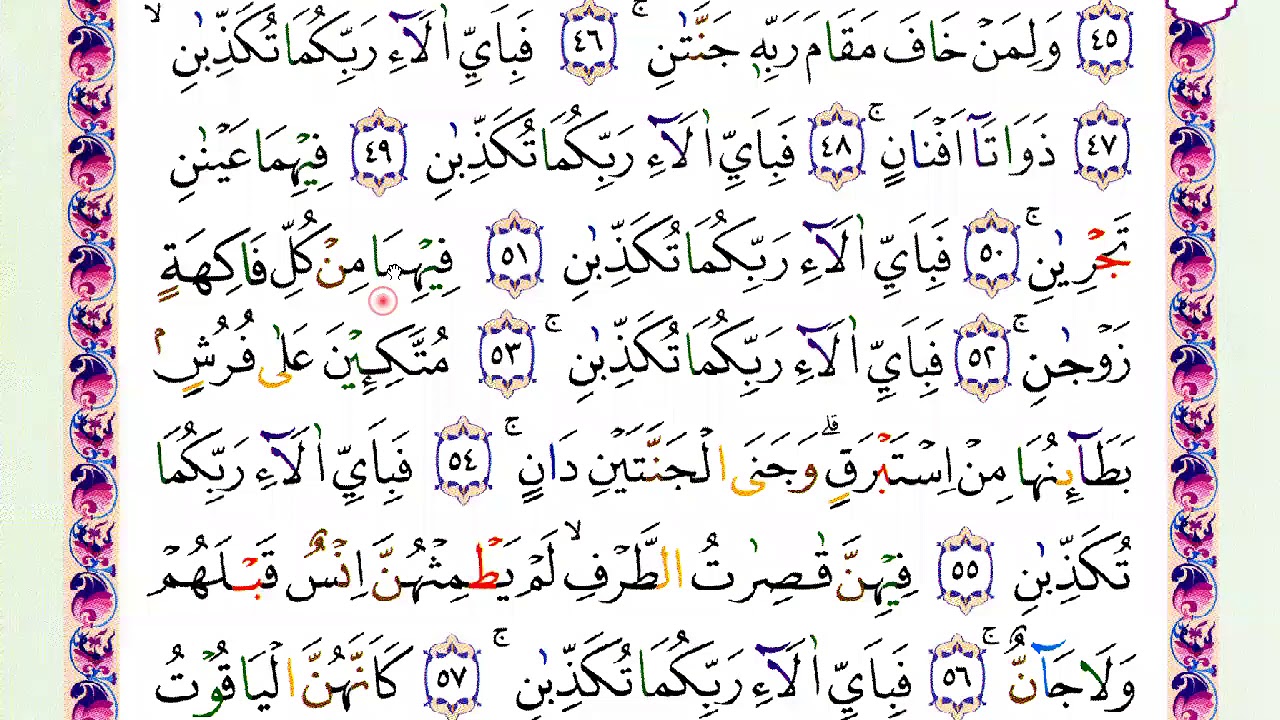 ٤٥ وَلِمَنْ خَافَ مَقَامَ رَبِّهٖ جَنَّتٰنِ ۚ ٤٦ فَبِاَيِّ اٰلَآءِ رَبِّكُمَا تُكَذِّبٰنِ ۙ
٤٧ ذَوَاتَآ اَفْنَانٍ ۚ ٤٨ فَبِاَيِّ اٰلَآءِ رَبِّكُمَا تُكَذِّبٰنِ ٤٩ فِيْهِمَا عَيْنٰنِ
تَجْرِيٰنِ ۚ ٥٠ فَبِاَيِّ اٰلَآءِ رَبِّكُمَا تُكَذِّبٰنِ ٥١ فِيْهِمَا مِنْ كُلِّ فَاكِهَةٍ
زَوْجٰنِ ۚ ٥٢ فَبِاَيِّ اٰلَآءِ رَبِّكُمَا تُكَذِّبٰنِ ۚ ٥٣ مُتَّكِـِٕيْنَ عَلٰى فُرُشٍۢ
بَطَاۤىِٕنُهَا مِنْ اِسْتَبْرَقٍ ۗ وَجَنَى الْجَنَّتَيْنِ دَانٍ ۚ ٥٤ فَبِاَيِّ اٰلَآءِ رَبِّكُمَا
تُكَذِّبٰنِ ٥٥ فِيْهِنَّ قٰصِرٰتُ الطَّرْفِ ۙ لَمْ يَطْمِثْهُنَّ اِنْسٌ قَبْلَهُمْ
وَلَا جَاۤنٌّ ۚ ٥٦ فَبِاَيِّ اٰلَآءِ رَبِّكُمَا تُكَذِّبٰنِ ۚ ٥٧ كَاَنَّهُنَّ الْيَاقُوْتُ